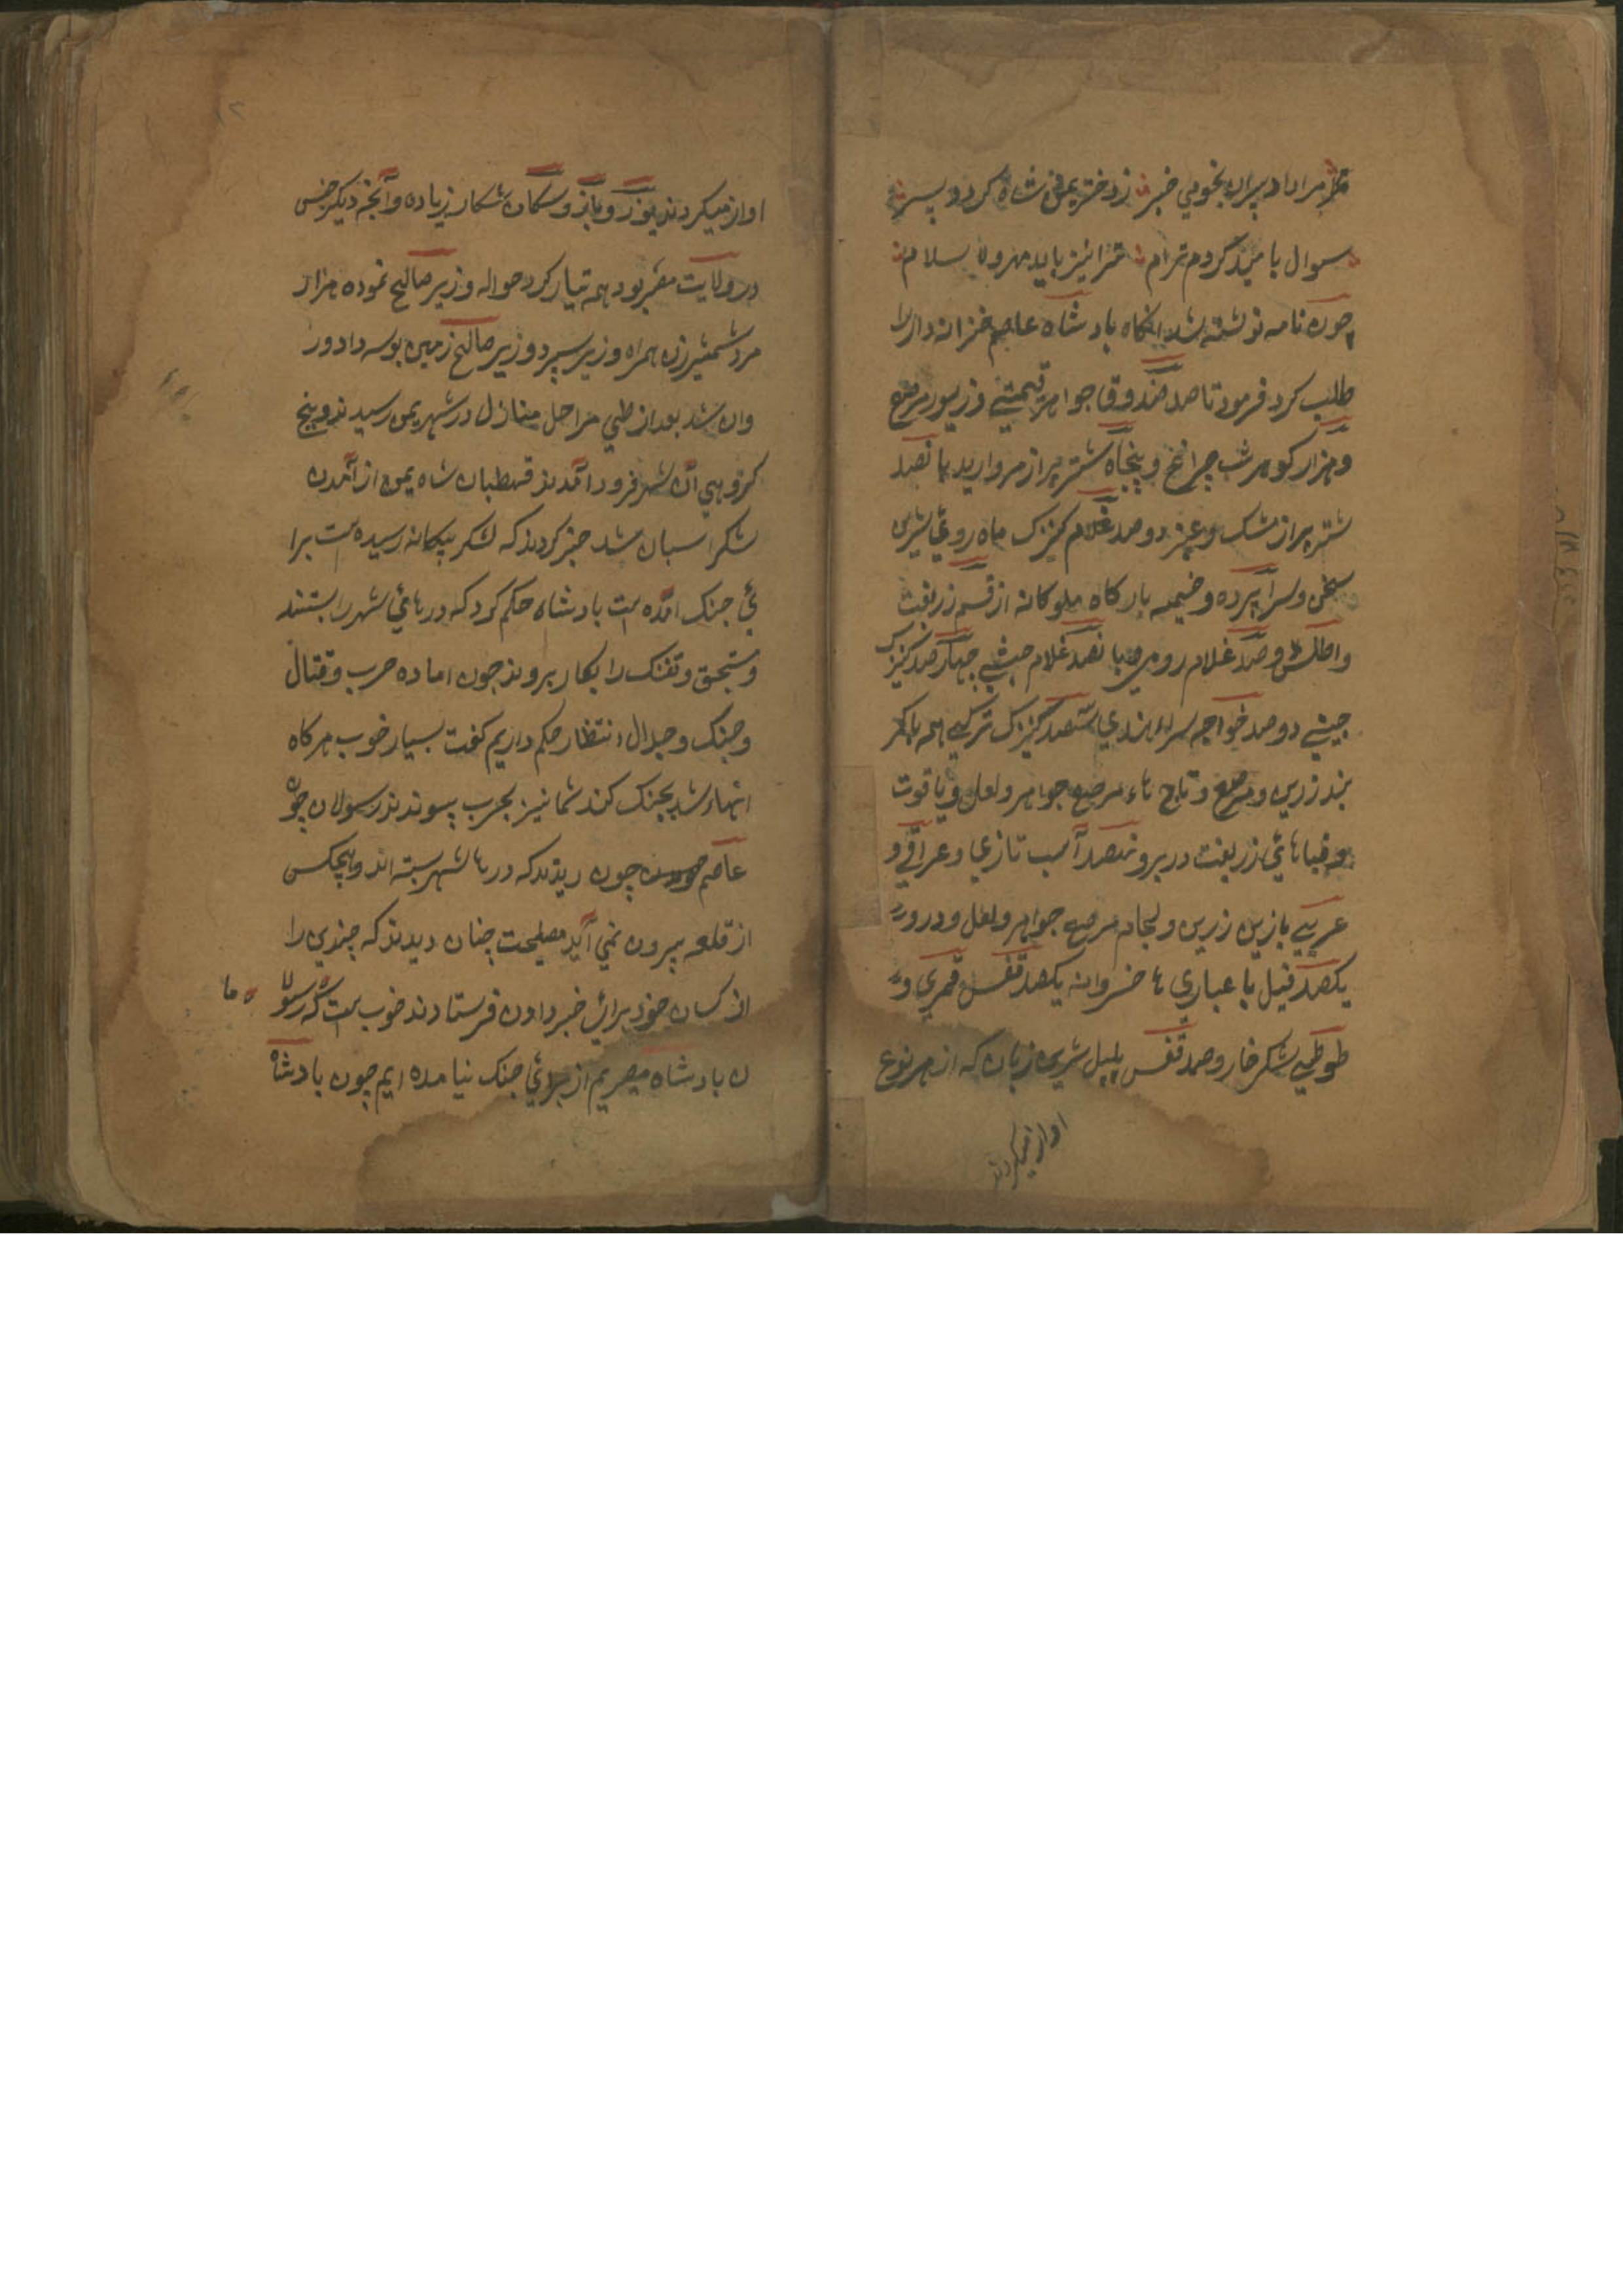 مرا داد پیران نجومی خبر ز دختر یمن شاه کردد پسر
سوال با مید کردم ترام ترا نیز باید مهرون سلام
چون نامه نوشته شد انکاه بادشاه عاصم خزانه دار را
طلب کرد فرمود تا صد صندوق جواهر قیمتی و زیور مرصع
و هزار کوهر شب چراغ و پنجاه شتر پر از مروارید پانصد
شتر پر از مشک و عنبر دوصد غلام کنیزک ماه روئی شیرین
سخن و سراپرده و خیمه بارکاه ملوکانه از قسم زربفت
و اطلس و صد غلام رومی پانصد غلام حبشی چهار صد کنیزک
حبشی دوصد خواجه سراء هندی ششصد کنیزک ترکی همه باکمر
بند زرین و مرصع و تاج هاء مرصع جواهر و لعل و یاقوت
و قباهائی زربفت در بر و ششصد آسپ تازی و عراقی و
عربی بازین زرین و لجام مرصع جواهر و لعل و درور
یکصد فیل با عماری ها خسروانه یکصد قفس قمری ور
طوطی شکر خار و صد قفس بلبل شیرین زبان که از هر نوع
اواز میکردند
اواز میکردند یوز و باز و سکان شکار زیاده و آنچه دیکر جنس
در ولایت مقر بود همه تیار کرد حواله وزیر صالیح نموده هزار
مرد شمشیرزن همراه وزیر سپرد وزیر صالیح زمین بوسه داد ور
وان شد بعد از طی مراحل منازل در شهر یمن رسیدند و پنج
کروهی آن شهر فرود آمدند قهطبان شاه یمن از آمدن
شکراسبان شد خبر کردند که لشکر بیکانه رسیده است برا
ئی جنک امده است بادشاه حکم کرد که درهائی شهر را بستند
و منجنق و تفنک را بکار بروند چون اماده حرب و قتال
و جنک و جدال انتظار حکم داریم کفت بسیار خوب هرکاه
انهاء شد بجنک کند شما نیز بحرب پیوندند رسولان چون
عاصم چون دیدند که درها شهر بسته اند و هیچکس
از قلعه بیرون نمی آید مصلحت چنان دیدند که چندین را
از کسان خود برائی خبر دادن فرستادند خوب است که رسولا
ما
ن بادشاه مصریم از برائی جنک نیامده ایم چون بادشاه